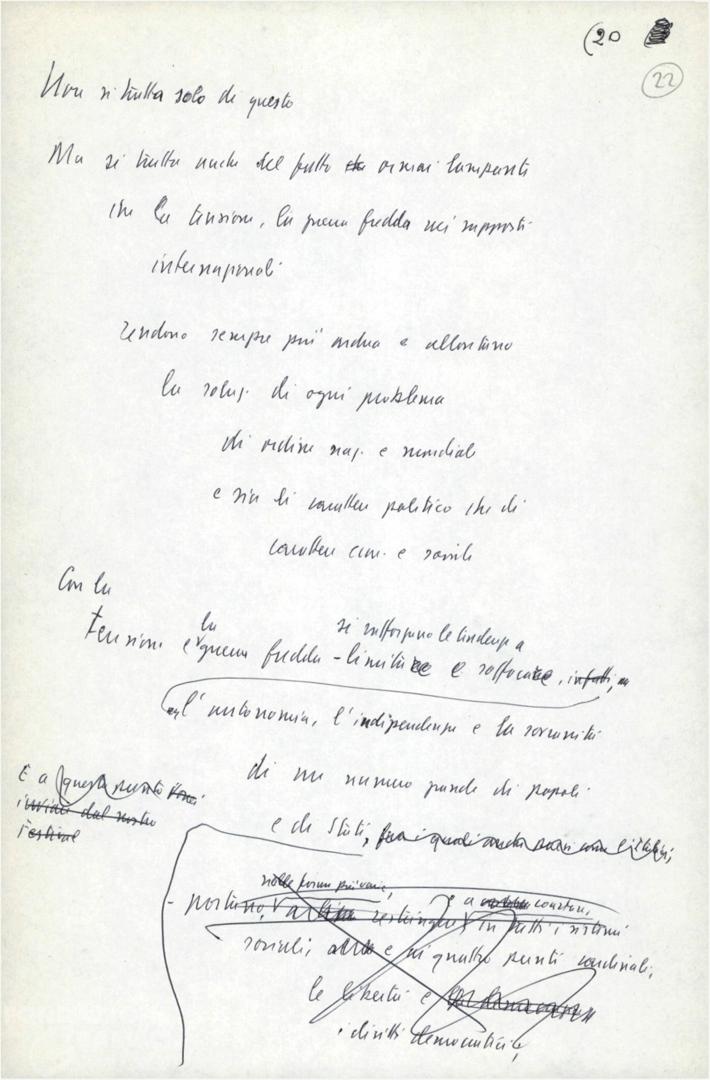 (20
22
Non si tratta solo di questo
Ma si tratta anche del fatto che ormai lampanti
che la tensione, la guerra fredda nei rapporti
internazionali
rendono sempre più ardua e allontano
la soluz. di ogni problema
di ordine naz. e mondiale
e sia di carattere politico che di
carattere econ. e sociale
Con la
la si rafforzano le tendenze a
tensione e guerra fredda - limitare e soffocare, infatti,
l'autonomia, l'indipendenza e la sovranità
di un numero grande di popoli
E a questo punto
inviato dal nostro
Festival
e di Stati, fra i quali anche
nelle forme più varie, e a contrarre,
- portano, restringere in tutti i sistemi
sociali, e ai quattro punti cardinali,
le libertà e
i diritti democratici,